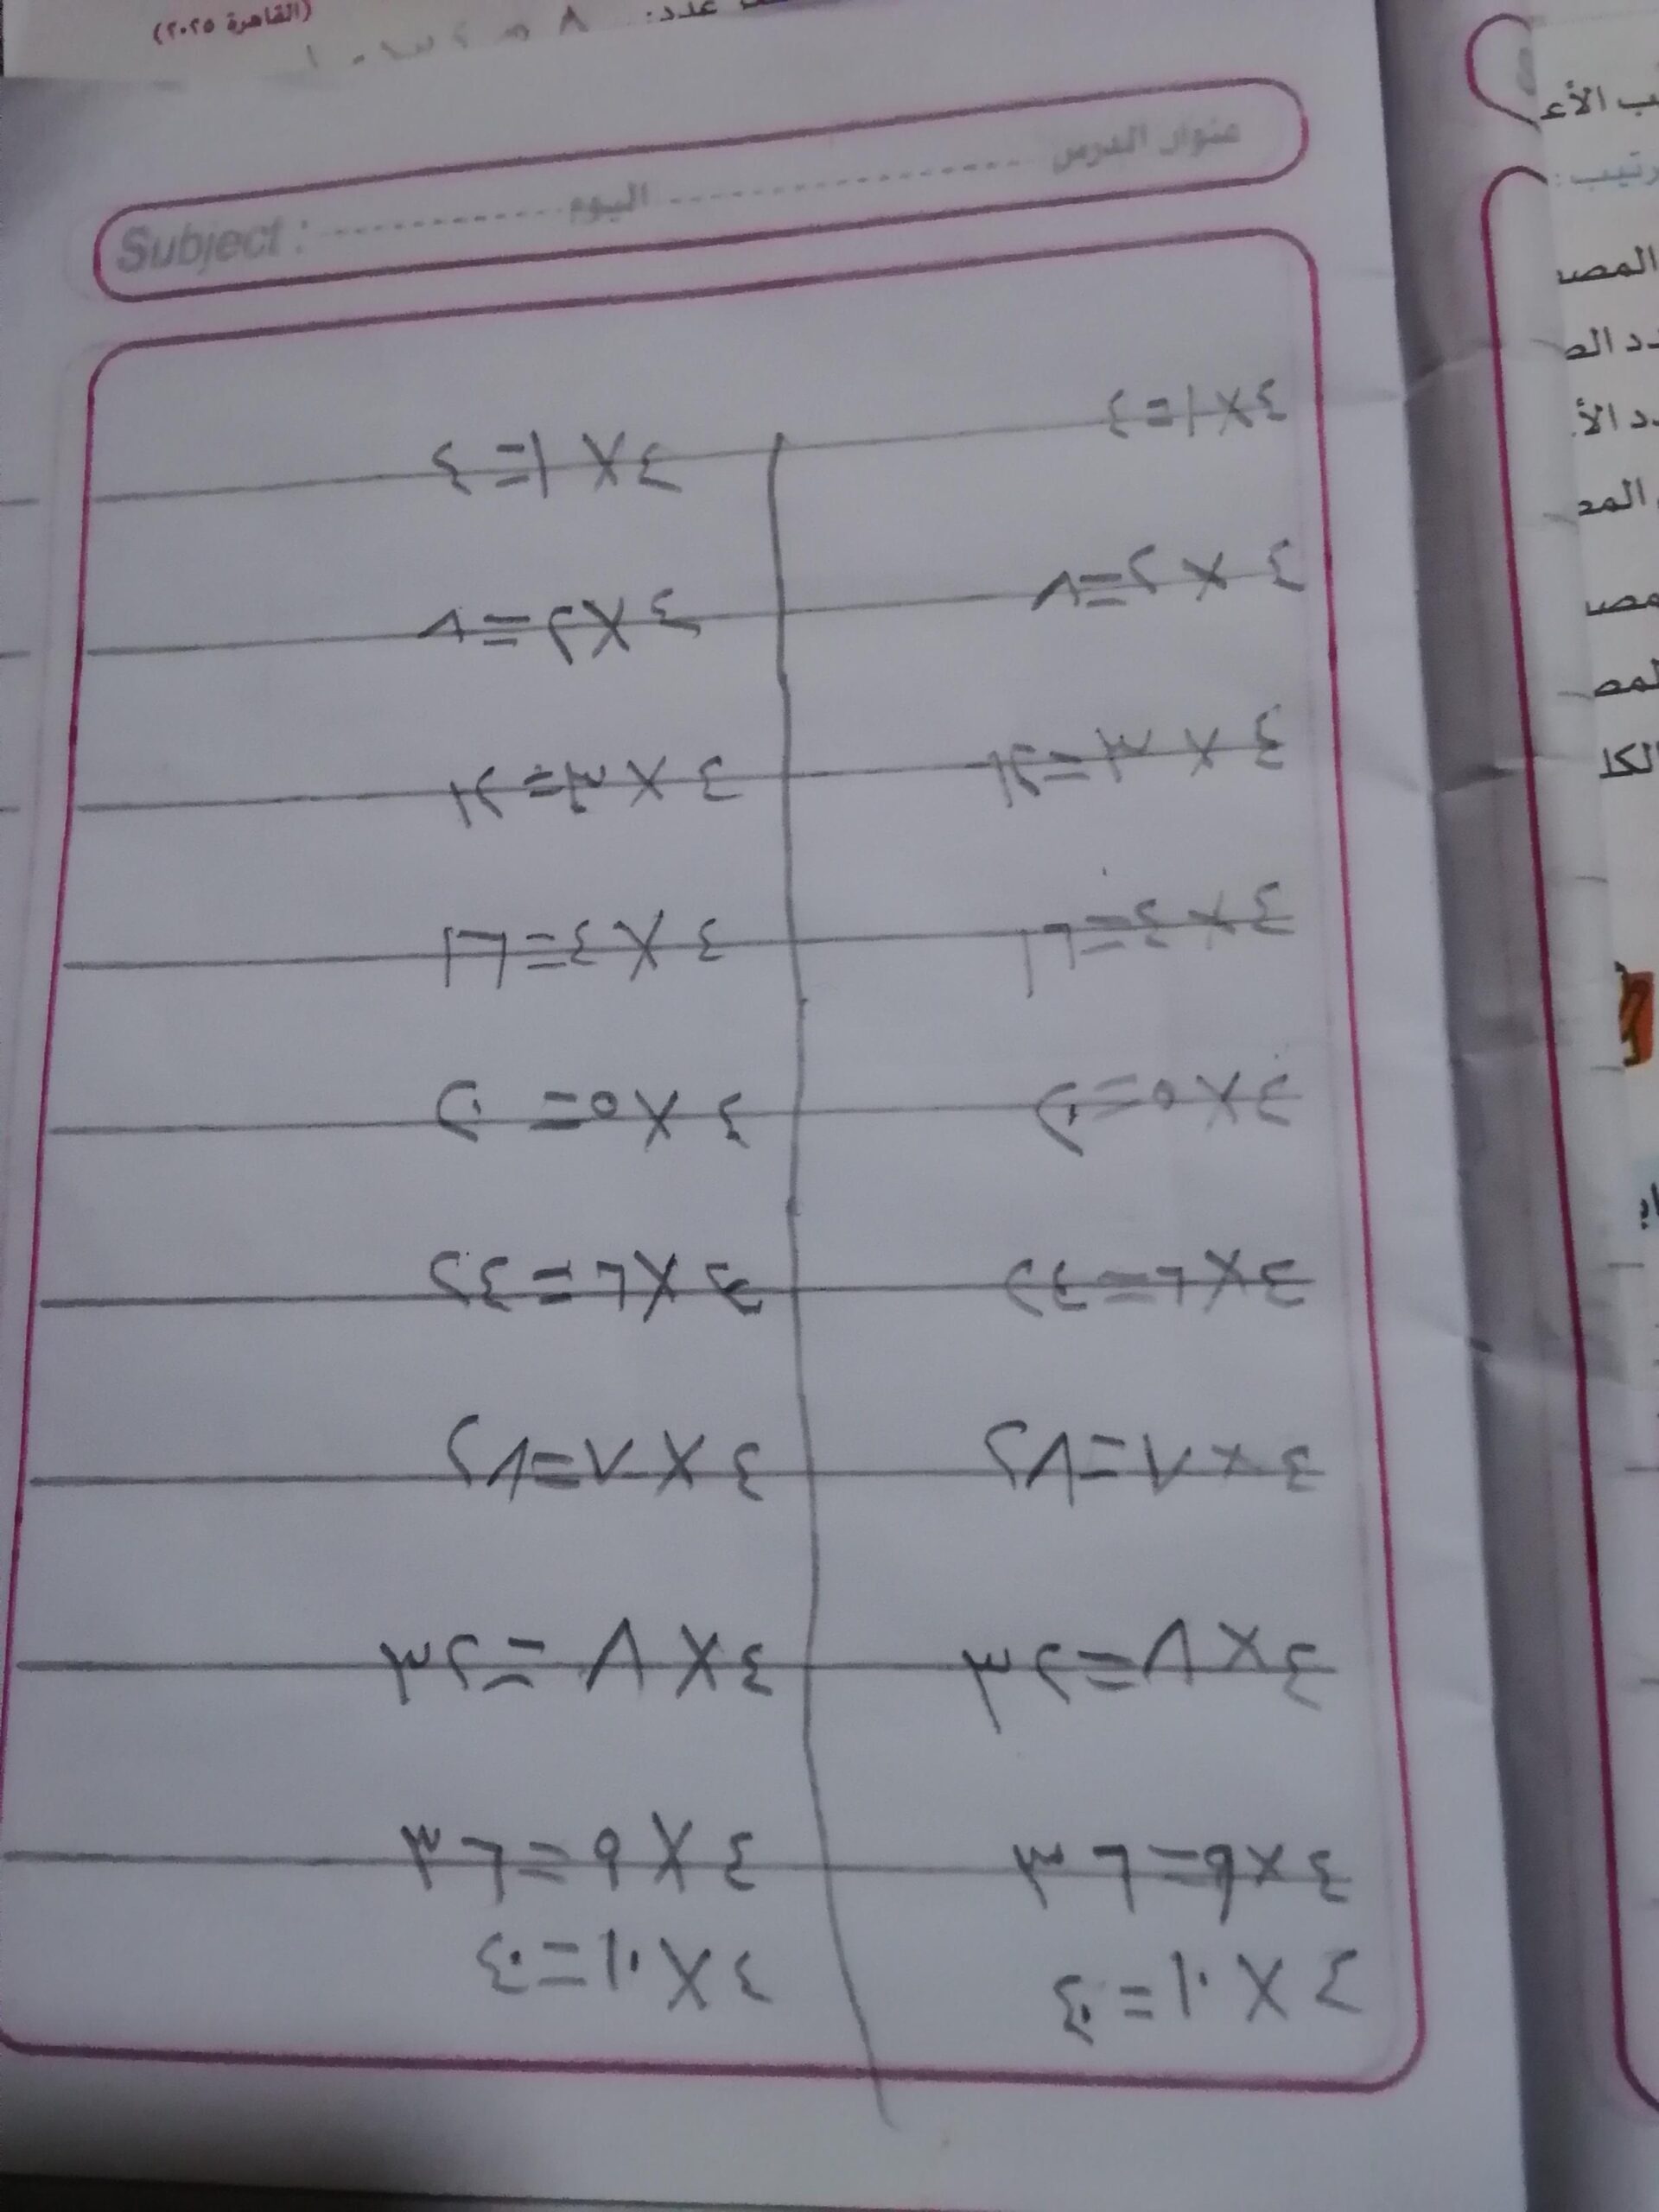 عدد: ٨
(القاهرة ٢٠٢٥)
عنوان الدرس ........ اليوم ........ Subject :
٤ × ١ = ٤
٤ × ١ = ٤
٤ × ٢ = ٨
٤ × ٢ = ٨
٤ × ٣ = ١٢
٤ × ٣ = ١٢
٤ × ٤ = ١٦
٤ × ٤ = ١٦
٤ × ٥ = ٢٠
٤ × ٥ = ٢٠
٤ × ٦ = ٢٤
٤ × ٦ = ٢٤
٤ × ٧ = ٢٨
٤ × ٧ = ٢٨
٤ × ٨ = ٣٢
٤ × ٨ = ٣٢
٤ × ٩ = ٣٦
٤ × ٩ = ٣٦
٤ × ١٠ = ٤٠
٤ × ١٠ = ٤٠